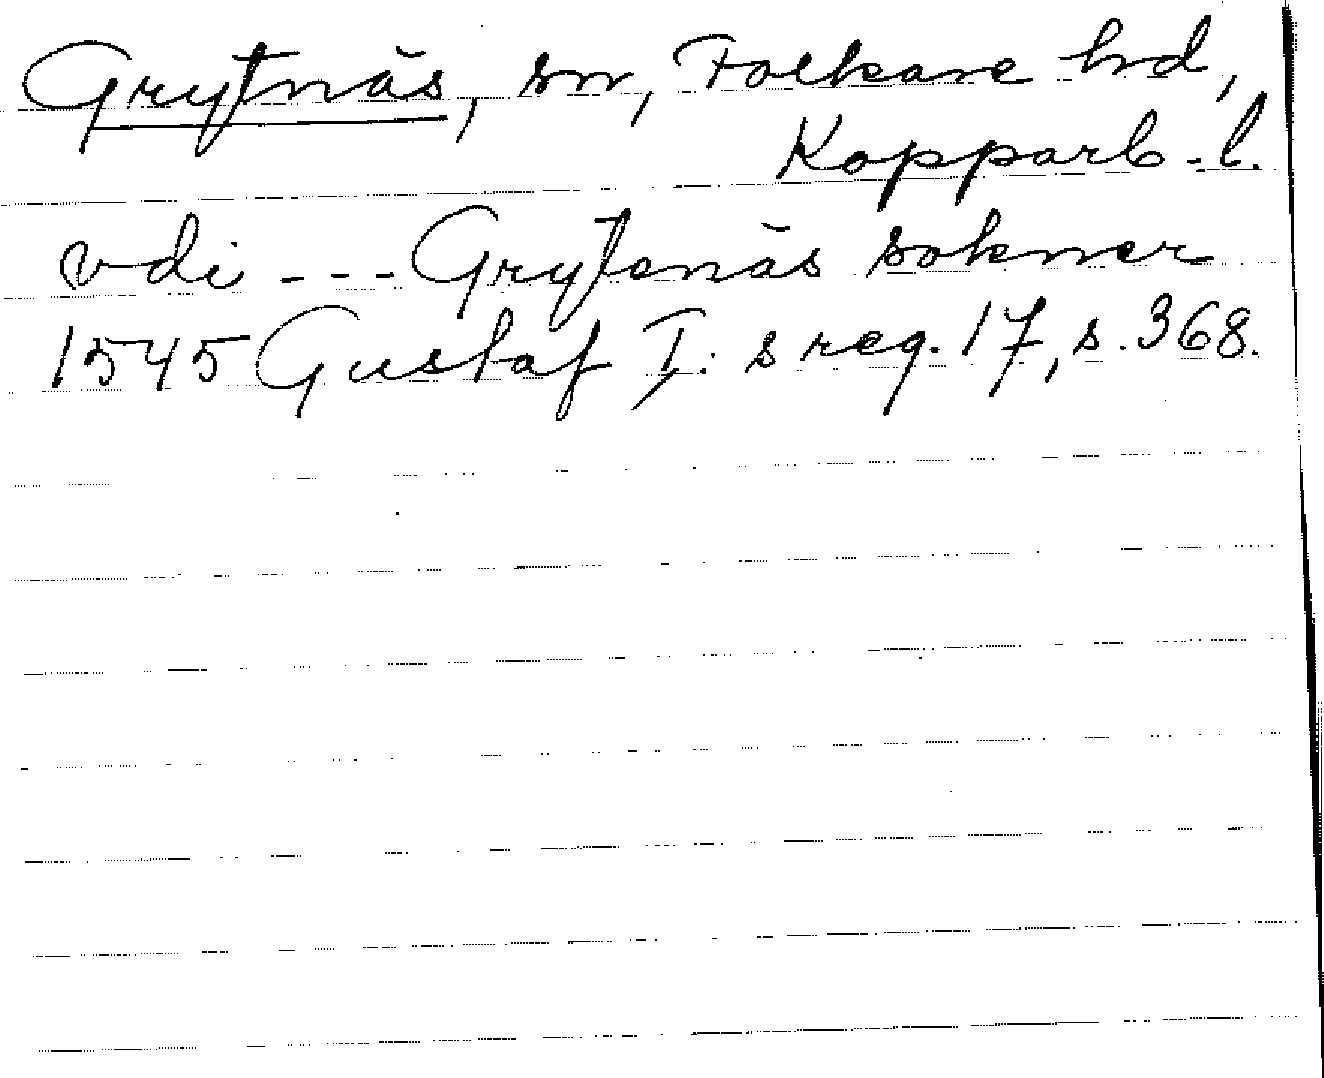 Grytnäs, sn, Folkare hd,
Kopparb-l.
vdi --- Grytenäs sokner
1545 Gustaf I:s reg. 17, s. 368.